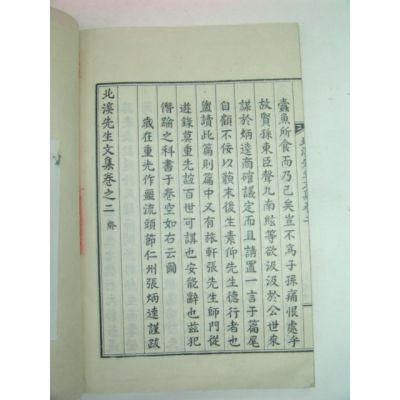 蠹魚所食而乃已矣豈不爲子孫痛恨處乎
故賢孫東臣聲九南絵等欲汲汲於公世來
謀於炳逵商確議定而且請置一言于篇尾
自顧不佞以蔑末後生素仰先生德行者也
盥讀此篇則篇中又有旅軒張先生師門從
遊錄莫重先誼百世可講也安能辭也兹犯
僭踰之科書于卷空如右云爾
歲在重光作噩流頭節仁州張炳逵謹跋
北溪先生文集卷之二 終